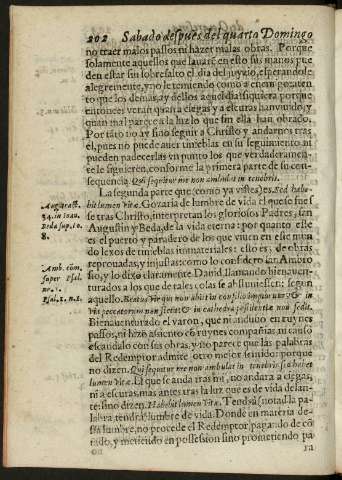 202 Sabado despues del quarto Domingo
no traer malos passos ni hazer malas obras. Porque
solamente aquellos que lauarẽ en esto sus manos pue
den estar sin sobresalto el dia del juyzio, esperandole
alegremente, y no le temiendo como a
to que los demas, ay dellos aquel dia siquiera porque
entonces verán quan a ciegas y a escuras han viuido, y
quan mal parece a la luz lo que sin ella han obrado.
Por tãto no ay sino seguir a Christo y andarnos tras
el, pues no puede auer tinieblas en su seguimiento ni
pueden padecerlas vn punto los que verdaderamen-
te le siguieren, conforme la primera parte de su con-
sequencia. Qui sequitur me non ambulat in tenebris.
La segunda parte que (como ya vistes) es. Sed habe-
bit lumen vitæ. Gozaria de lumbre de vida el que se fues
se tras Christo, interpretan los gloriosos Padres, san
Augustin y Beda, de la vida eterna: por quanto este
es el puerto y paradero de los que viuen en este mun
do lexos de tinieblas inmateriales: esto es, de obras
reprouadas, y injustas: como lo considero san Ambro
sio, y lo dixo claramente Dauid llamando bienauen-
turados a los que de tales cosas se abstuuiessen: segun
aquello. Beatus vir qui non abijt in consilio impiorum, & in
via peccatorum non stetit & in cathedra pestilentiæ non sedit.
Bienauenturado el varon, que ni anduuo en ruynes
passos, ni hizo assiento cõ ruynes compañias ni causò
escandalo con sus obras, y no parece que las palabras
del Redemptor admite otro mejor sentido: porque
no dizen. Qui sequitur me non ambulat in tenebris, sed habet
lumen vitæ. El que se anda tras mi, no andara a ciegas,
ni a escuras, mas antes tras la luz que es de vida delan-
te: sino dizen. Habebit lumen vitæ. Tendrá (notad la pa-
labra tendrá) lumbre de vida. Donde en materia de
sta lumbre, no procede el Redemptor pagando de cõ
tado, y metiendo en possession sino prometiendo pa
ra
August.
34. in Ioan.
Beda sup. 10.
8.
Amb. cõm.
super Psal.
nr. 1.
Psal. 1. n. 1.